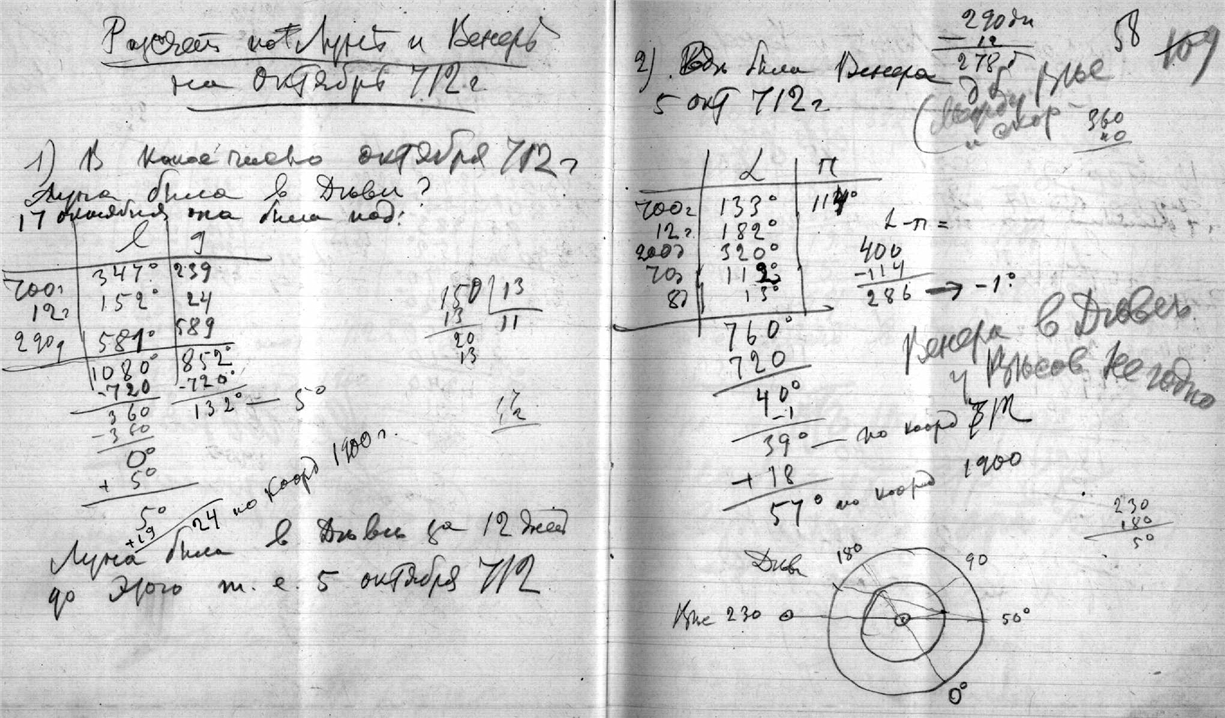 Расчет по Луне и Венере
на октябрь 712 г
1) В какое число октября 712 г
Луна была в Деве?
17 октября она была под:
l g
700г 347° 239
12г 152° 24
290д 581° 589
1080° 852°
-720 -720°
360 132° — 5°
-360
0°
+ 5°
5°
+19
24 по коорд 1900 г.
150 13
13 11
20
13
Луна была в Деве за 12 дней
до этого т. е. 5 октября 712
290 дн
- 12
278
58
109
2) Где была Венера
5 окт 712 г
360
L π
700г 133° 114°
12г 182°
200д 320°
70д 112°
8д 13°
L-π=
400
-114
286 → -1°
760°
720
40°
-1
39° — по коорд
+ 18
57° по коорд 1900
Венера в Деве
и Весов не годно
230
180
5°
Дева 180 90
230 50°
0°